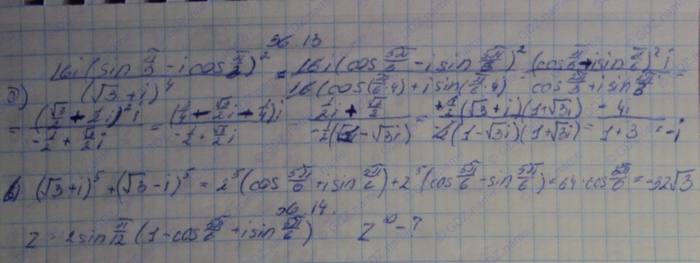 36.13
а) 16i(sin π/3 - i cos π/3)² / (√3 + i)⁴ = 16i(cos 5π/6 - i sin 5π/6)² / 16(cos(π/6·4) + i sin(π/6·4)) = (cos π/6 + i sin π/6)² i / cos 2π/3 + i sin 2π/3 =
= (√3/2 + 1/2 i)² i / -1/2 + √3/2 i = (3/4 + √3/2 i - 1/4) i / -1/2 + √3/2 i = 1/2 i + √3/2 / -1/2(1 - √3i) = + 1/2 (√3 + i)(1 + √3i) / 2(1 - √3i)(1 + √3i) = - 4i / 1 + 3 = -i
б) (√3 + i)⁵ + (√3 - i)⁵ = 2⁵(cos 5π/6 + i sin 5π/6) + 2⁵(cos 5π/6 - sin 5π/6) = 64·cos 5π/6 = -32√3
36.14.
Z = 2 sin π/12 (1 - cos 5π/6 + i sin 5π/6) Z¹⁰ - ?